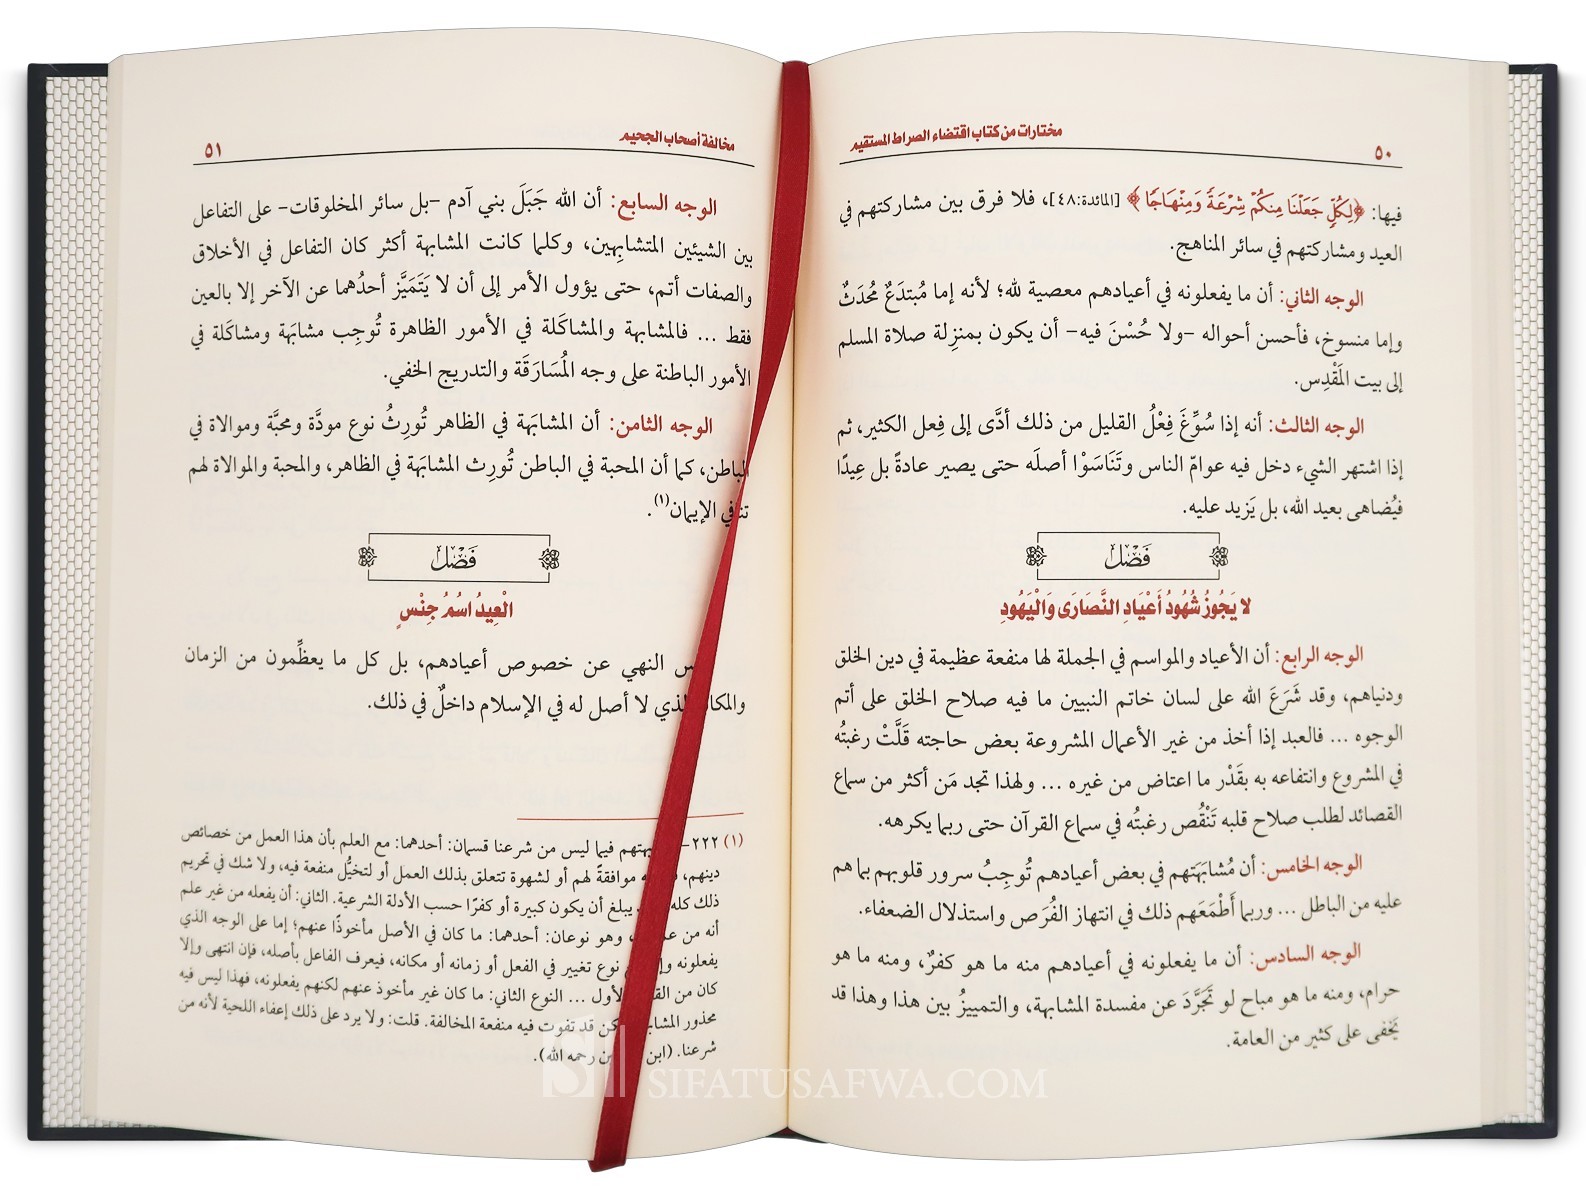 مختارات من كتاب اقتضاء الصراط المستقيم
٥٠
فيها: ﴿لِكُلٍّ جَعَلْنَا مِنكُمْ شِرْعَةً وَمِنْهَاجًا﴾ [المائدة:٤٨]، فلا فرق بين مشاركتهم في
العيد ومشاركتهم في سائر المناهج.
الوجه الثاني: أن ما يفعلونه في أعيادهم معصية لله؛ لأنه إما مُبتدَعٌ مُحدَثٌ
وإما منسوخ، فأحسن أحواله -ولا حُسْنَ فيه- أن يكون بمنزِلة صلاة المسلم
إلى بيت المَقْدِس.
الوجه الثالث: أنه إذا سُوِّغَ فِعْلُ القليل من ذلك أدَّى إلى فِعل الكثير، ثم
إذا اشتهر الشيء دخل فيه عوامّ الناس وتَنَاسَوْا أصلَه حتى يصير عادةً بل عِيدًا
فيُضاهى بعيد الله، بل يَزيد عليه.
فَصْلٌ
لا يَجُوزُ شُهُودُ أَعْيَادِ النَّصَارَى وَالْيَهُودِ
الوجه الرابع: أن الأعياد والمواسم في الجملة لها منفعة عظيمة في دين الخلق
ودنياهم، وقد شَرَعَ الله على لسان خاتم النبيين ما فيه صلاح الخلق على أتم
الوجوه ... فالعبد إذا أخذ من غير الأعمال المشروعة بعض حاجته قَلَّتْ رغبتُه
في المشروع وانتفاعه به بقَدْر ما اعتاض من غيره ... ولهذا تجد مَن أكثر من سماع
القصائد لطلب صلاح قلبه تَنْقُص رغبتُه في سماع القرآن حتى ربما يكرهه.
الوجه الخامس: أن مُشابَهَتهم في بعض أعيادهم تُوجِبُ سرور قلوبهم بما هم
عليه من الباطل ... وربما أَطْمَعَهم ذلك في انتهاز الفُرَص واستذلال الضعفاء.
الوجه السادس: أن ما يفعلونه في أعيادهم منه ما هو كفرٌ، ومنه ما هو
حرام، ومنه ما هو مباح لو تَجَرَّدَ عن مفسدة المشابهة، والتمييزُ بين هذا وهذا قد
يَخفى على كثير من العامة.
مخالفة أصحاب الجحيم
٥١
الوجه السابع: أن الله جَبَلَ بني آدم -بل سائر المخلوقات- على التفاعل
بين الشيئين المتشابهين، وكلما كانت المشابهة أكثر كان التفاعل في الأخلاق
والصفات أتم، حتى يؤول الأمر إلى أن لا يَتَمَيَّز أحدُهما عن الآخر إلا بالعين
فقط ... فالمشابهة والمشاكلة في الأمور الظاهرة تُوجِب مشابَهة ومشاكَلة في
الأمور الباطنة على وجه المُسَارَقَة والتدريج الخفي.
الوجه الثامن: أن المشابَهة في الظاهر تُورِثُ نوع مودَّة ومحبَّة وموالاة في
الباطن، كما أن المحبة في الباطن تُورِث المشابَهة في الظاهر، والمحبة والموالاة لهم
تنافي الإيمان(١).
فَصْلٌ
الْعِيدُ اسْمُ جِنْسٍ
النهي عن خصوص أعيادهم، بل كل ما يعظِّمون من الزمان
لا أصل له في الإسلام داخلٌ في ذلك.
(١) ٢٢٢- فيما ليس من شرعنا قسمان: أحدهما: مع العلم بأن هذا العمل من خصائص
دينهم، موافقةً لهم أو لشهوة تتعلق بذلك العمل أو لتخيُّل منفعة فيه، ولا شك في تحريم
ذلك كله يبلغ أن يكون كبيرة أو كفرًا حسب الأدلة الشرعية. الثاني: أن يفعله من غير علم
أنه من ، وهو نوعان: أحدهما: ما كان في الأصل مأخوذًا عنهم؛ إما على الوجه الذي
يفعلونه نوع تغيير في الفعل أو زمانه أو مكانه، فيعرف الفاعل بأصله، فإن انتهى وإلا
كان من الأول ... النوع الثاني: ما كان غير مأخوذ عنهم لكنهم يفعلونه، فهذا ليس فيه
محذور قد تفوت فيه منفعة المخالفة. قلت: ولا يرد على ذلك إعفاء اللحية لأنه من
شرعنا. رحمه الله).
SIFATUSAFWA.COM